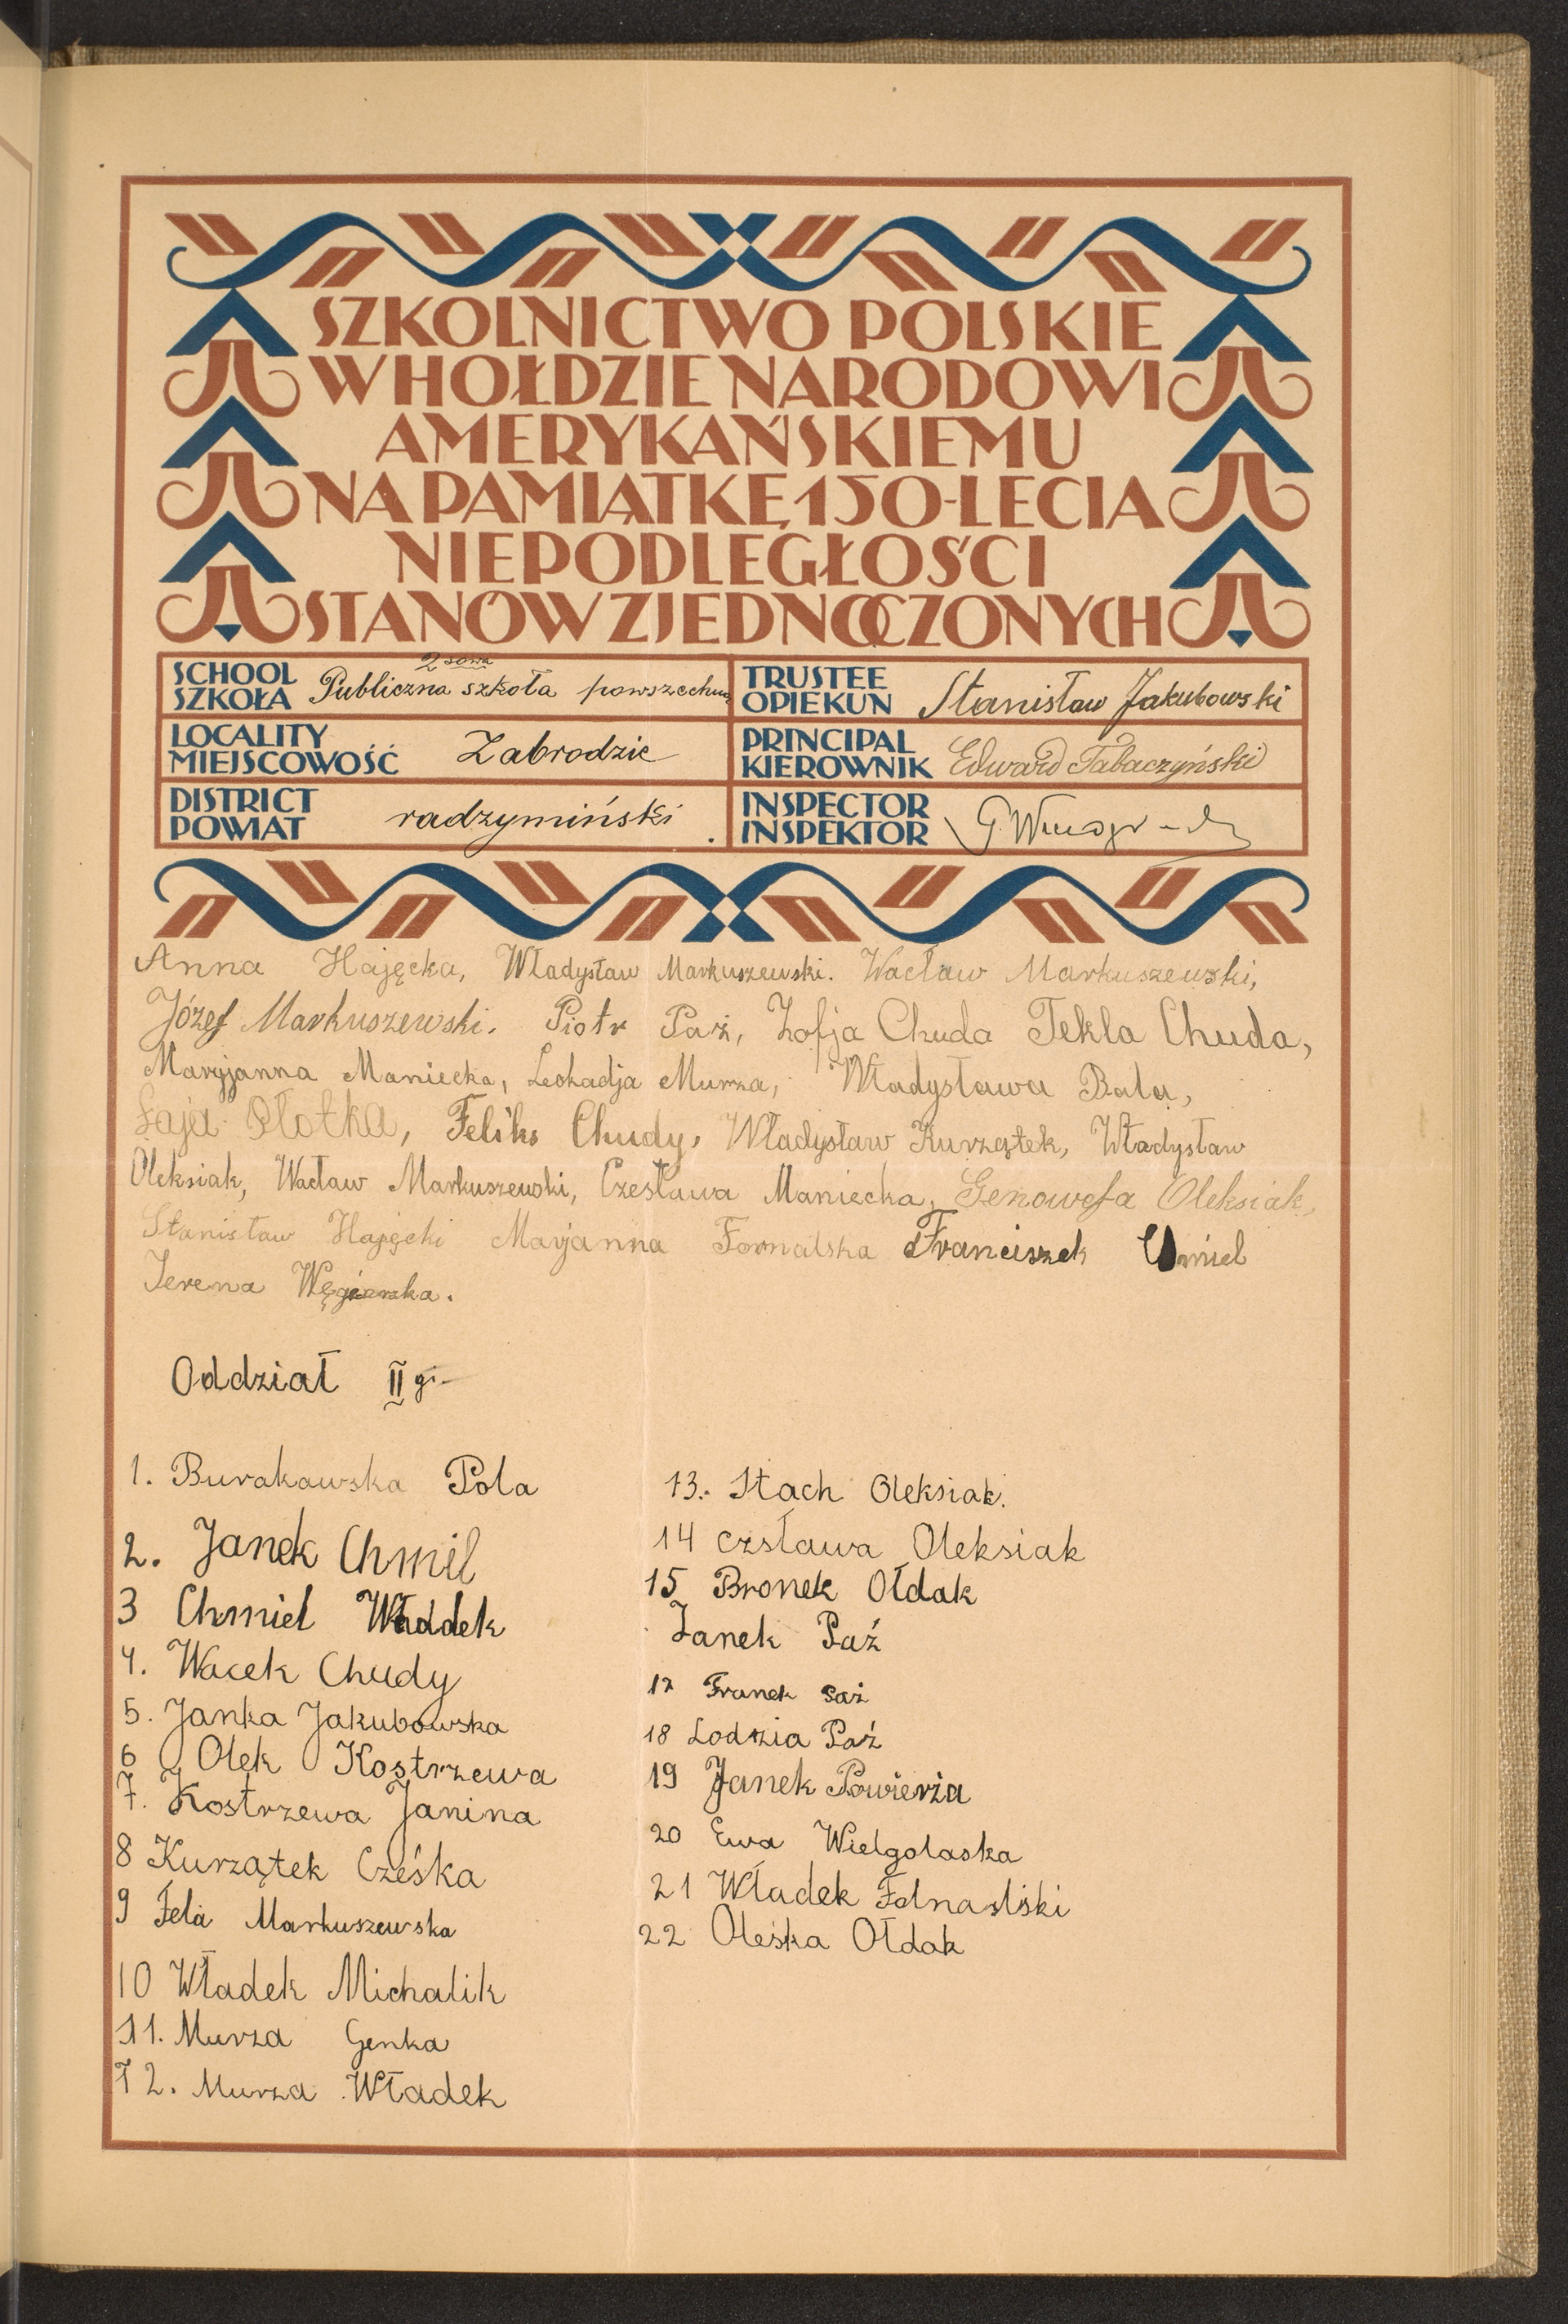 SZKOLNICTWO POLSKIE
W HOŁDZIE NARODOWI
AMERYKAŃSKIEMU
NA PAMIĄTKĘ 150-LECIA
NIEPODLEGŁOŚCI
STANÓW ZJEDNOCZONYCH
SCHOOL
SZKOŁA
2 sowa
Publiczna szkoła powszechna
TRUSTEE
OPIEKUN
Stanisław Jakubowski
LOCALITY
MIEJSCOWOŚĆ
Zabrodzie
PRINCIPAL
KIEROWNIK
Edward Tabaczyński
DISTRICT
POWIAT
radzymiński.
INSPECTOR
INSPEKTOR
Anna Hajęcka, Władysław Markuszewski. Wacław Markuszewski,
Józef Markuszewski. Piotr Paź, Zofja Chuda Tekla Chuda,
Maryjanna Maniecka, Leokadja Murza, Władysława Bala,
Łaja Płotka, Feliks Chudy, Władysław Kurzątek, Władysław
Oleksiak, Wacław Markuszewski, Czesława Maniecka, Genowefa Oleksiak,
Stanisław Hajęcki Maryjanna Fornalska Franciszek
Jerena
Oddział II gi
1. Burakawska Pola
2. Janek Chmil
3 Chmiel Właddek
4. Wacek Chudy
5. Janka Jakubowska
6 Olek Kostrzewa
7. Kostrzewa Janina
8 Kurzątek Cześka
9 Fela Markuszewska
10 Władek Michalik
11. Murza Genka
12. Murza Władek
13. Stach Oleksiak.
14 czsława Oleksiak
15 Bronek Ołdak
Janek Paź
17 Franek Paź
18 Lodzia Paź
19 Janek Powierża
20 Ewa Wielgolaska
21 Władek
22 Oleśka Ołdak